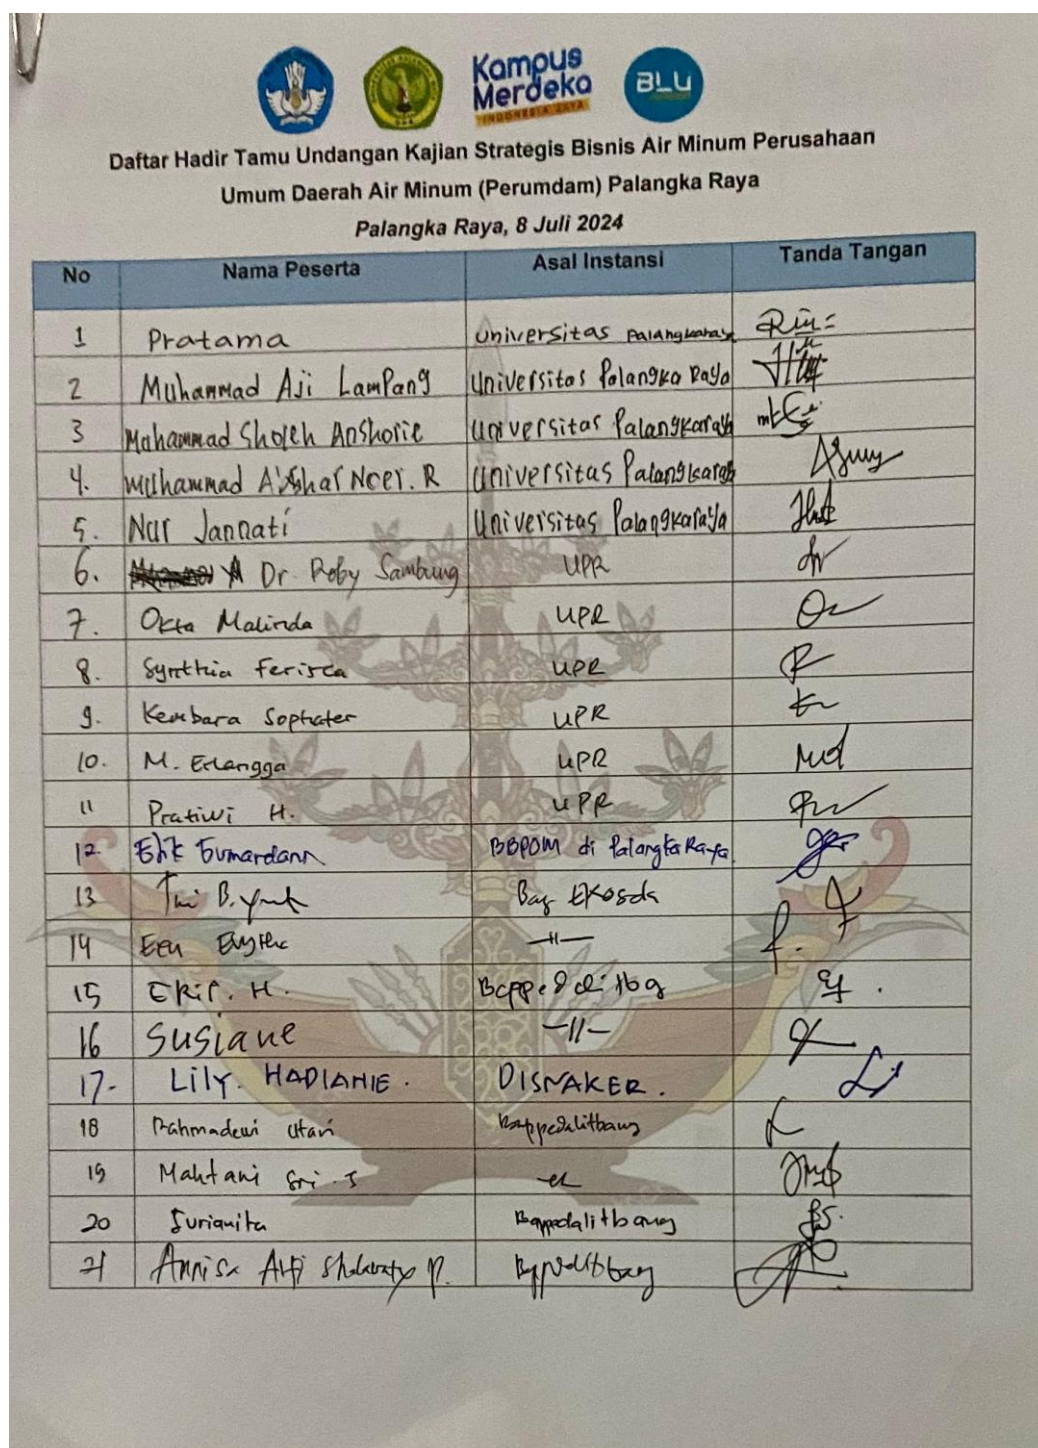 Kampus
Merdeka
INDONESIA JAYA
BLU
Daftar Hadir Tamu Undangan Kajian Strategis Bisnis Air Minum Perusahaan
Umum Daerah Air Minum (Perumdam) Palangka Raya
Palangka Raya, 8 Juli 2024
No Nama Peserta Asal Instansi Tanda Tangan
1 Pratama Universitas Palangkaraya
2 Muhammad Aji Lampang Universitas Palangka Raya
3 Muhammad Sholeh Anshorie Universitas Palangkaraya
4. Muhammad Noer. R Universitas Palangkaraya
5. Nur Jannati Universitas Palangkaraya
6. Dr. Roby Sambung UPR
7. Okta Malinda UPR
8. Synthia Ferisca UPR
9. Kembara UPR
10. M. Erlangga UPR
11 Pratiwi H. UPR
12. BBPOM di Palangka Raya
13 B. Bag Ekosda
14 —11—
15 H. Bappedalitbg
16 Susiane —11—
17- LILY. HADIANIE. DISNAKER.
18 Rahmadewi Utari Bappedalitbang
19 Mahtani Sri. S
20 Surianita Bappedalitbang
21 Annisa P. Bappedalitbang